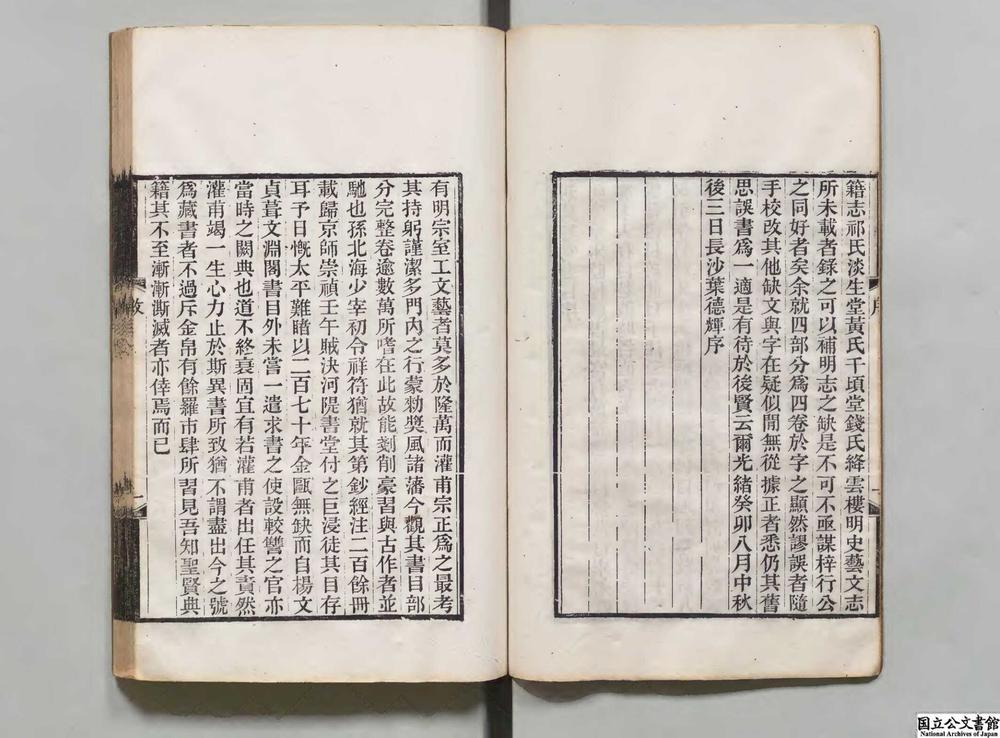 籍志祁氏淡生堂黃氏千頃堂錢氏絳雲樓明史藝文志
所未載者錄之可以補明志之缺是不可不亟謀梓行公
之同好者矣余就四部分爲四卷於字之顯然謬誤者隨
手校改其他缺文與字在疑似閒無從據正者悉仍其舊
思誤書爲一適是有待於後賢云爾光緖癸卯八月中秋
後三日長沙葉德輝序
有明宗室工文藝者莫多於隆萬而灌甫宗正爲之最考
其持躬謹潔多門內之行蒙勑奬風諸藩今觀其書目部
分完整卷逾數萬所嗜在此故能剗削豪習與古作者並
馳也孫北海少宰初令祥符猶就其第鈔經注二百餘冊
載歸京師崇禎壬午賊決河隄書堂付之巨浸徒其目存
耳予日慨太平難睹以二百七十年金甌無缺而自楊文
貞葺文淵閣書目外未嘗一遣求書之使設較讐之官亦
當時之闕典也道不終衰固宜有若灌甫者出任其責然
灌甫竭一生心力止於斯異書所致猶不謂盡出今之號
爲藏書者不過斥金帛有餘羅市肆所習見吾知聖賢典
籍其不至漸漸澌滅者亦倖焉而已
国立公文書館
National Archives of Japan